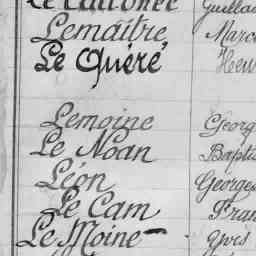 Lemaître Marc
Le Quéré Hen
Lemoine Georg
Le Noan Bapti
Léon Georges
Le Cam Fran
Le Moine - Yvis